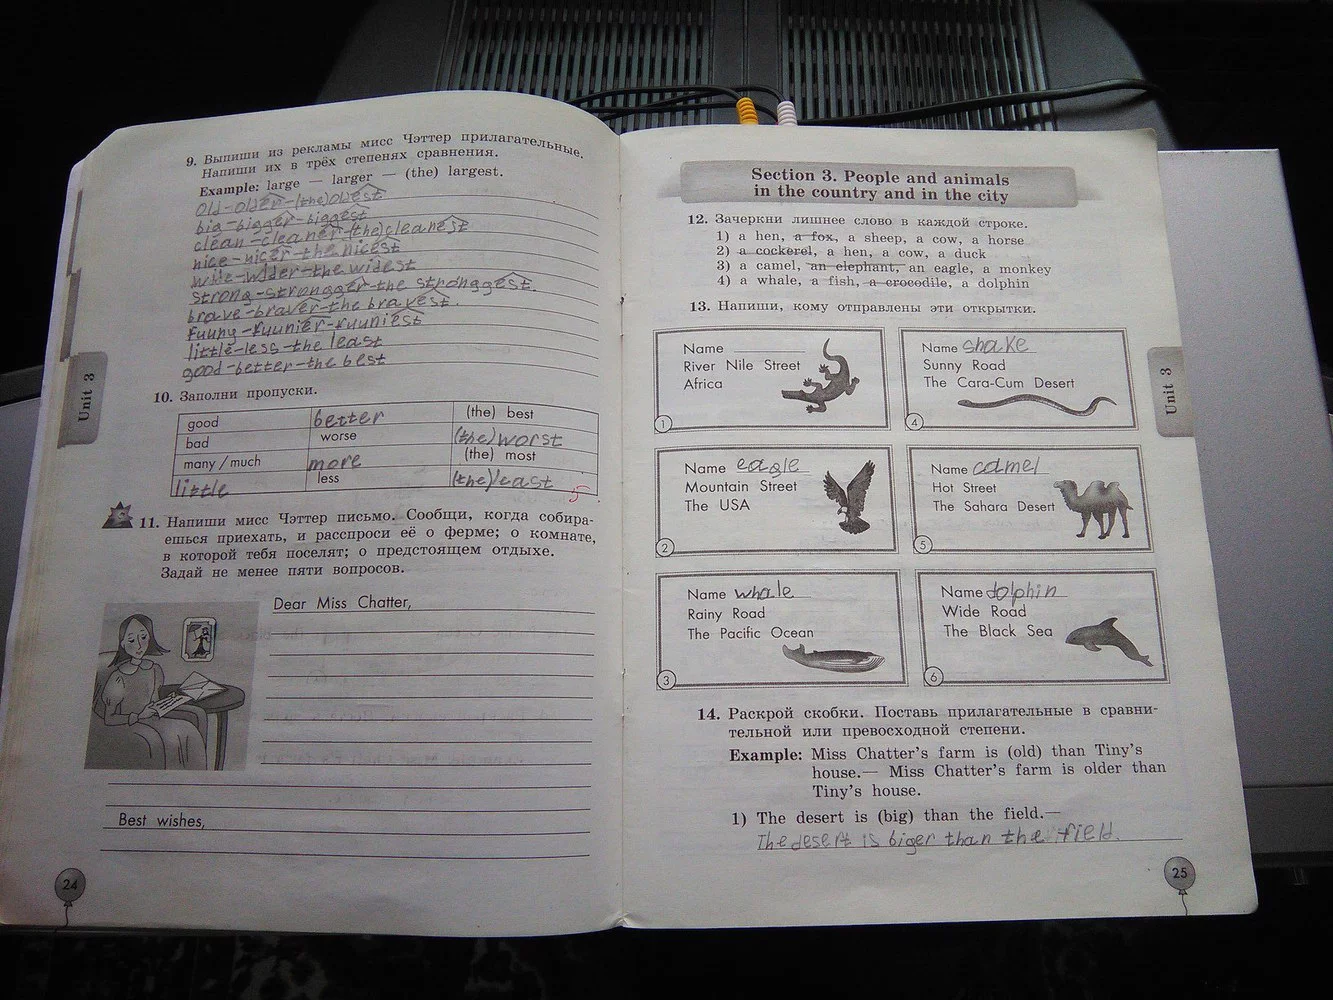 9. Выпиши из рекламы мисс Чэттер прилагательные.
Напиши их в трёх степенях сравнения.
Example: large — larger — (the) largest.
old-older-(the)oldest
big-bigger-biggest
clean-cleaner-(the)cleanest
nice-nicer-the nicest
wide-wider-the widest
strong-strongger-the stronggest.
brave-braver-the bravest.
fuuny-fuunier-fuuniest
little-less-the least
good-better-the best
10. Заполни пропуски.
good better (the) best
bad worse (the) worst
many / much more (the) most
little less (the) least
5
11. Напиши мисс Чэттер письмо. Сообщи, когда собира-
ешься приехать, и расспроси её о ферме; о комнате,
в которой тебя поселят; о предстоящем отдыхе.
Задай не менее пяти вопросов.
Dear Miss Chatter,
Best wishes,
24
Unit 3
Section 3. People and animals
in the country and in the city
12. Зачеркни лишнее слово в каждой строке.
1) a hen, a fox, a sheep, a cow, a horse
2) a cockerel, a hen, a cow, a duck
3) a camel, an elephant, an eagle, a monkey
4) a whale, a fish, a crocodile, a dolphin
13. Напиши, кому отправлены эти открытки.
Name
River Nile Street
Africa
1
Name eagle
Mountain Street
The USA
2
Name whale
Rainy Road
The Pacific Ocean
3
Name shake
Sunny Road
The Cara-Cum Desert
4
Name camel
Hot Street
The Sahara Desert
5
Name dolphin
Wide Road
The Black Sea
6
14. Раскрой скобки. Поставь прилагательные в сравни-
тельной или превосходной степени.
Example: Miss Chatter's farm is (old) than Tiny's
house.— Miss Chatter's farm is older than
Tiny's house.
1) The desert is (big) than the field.—
The desert is biger than the field.
25
Unit 3